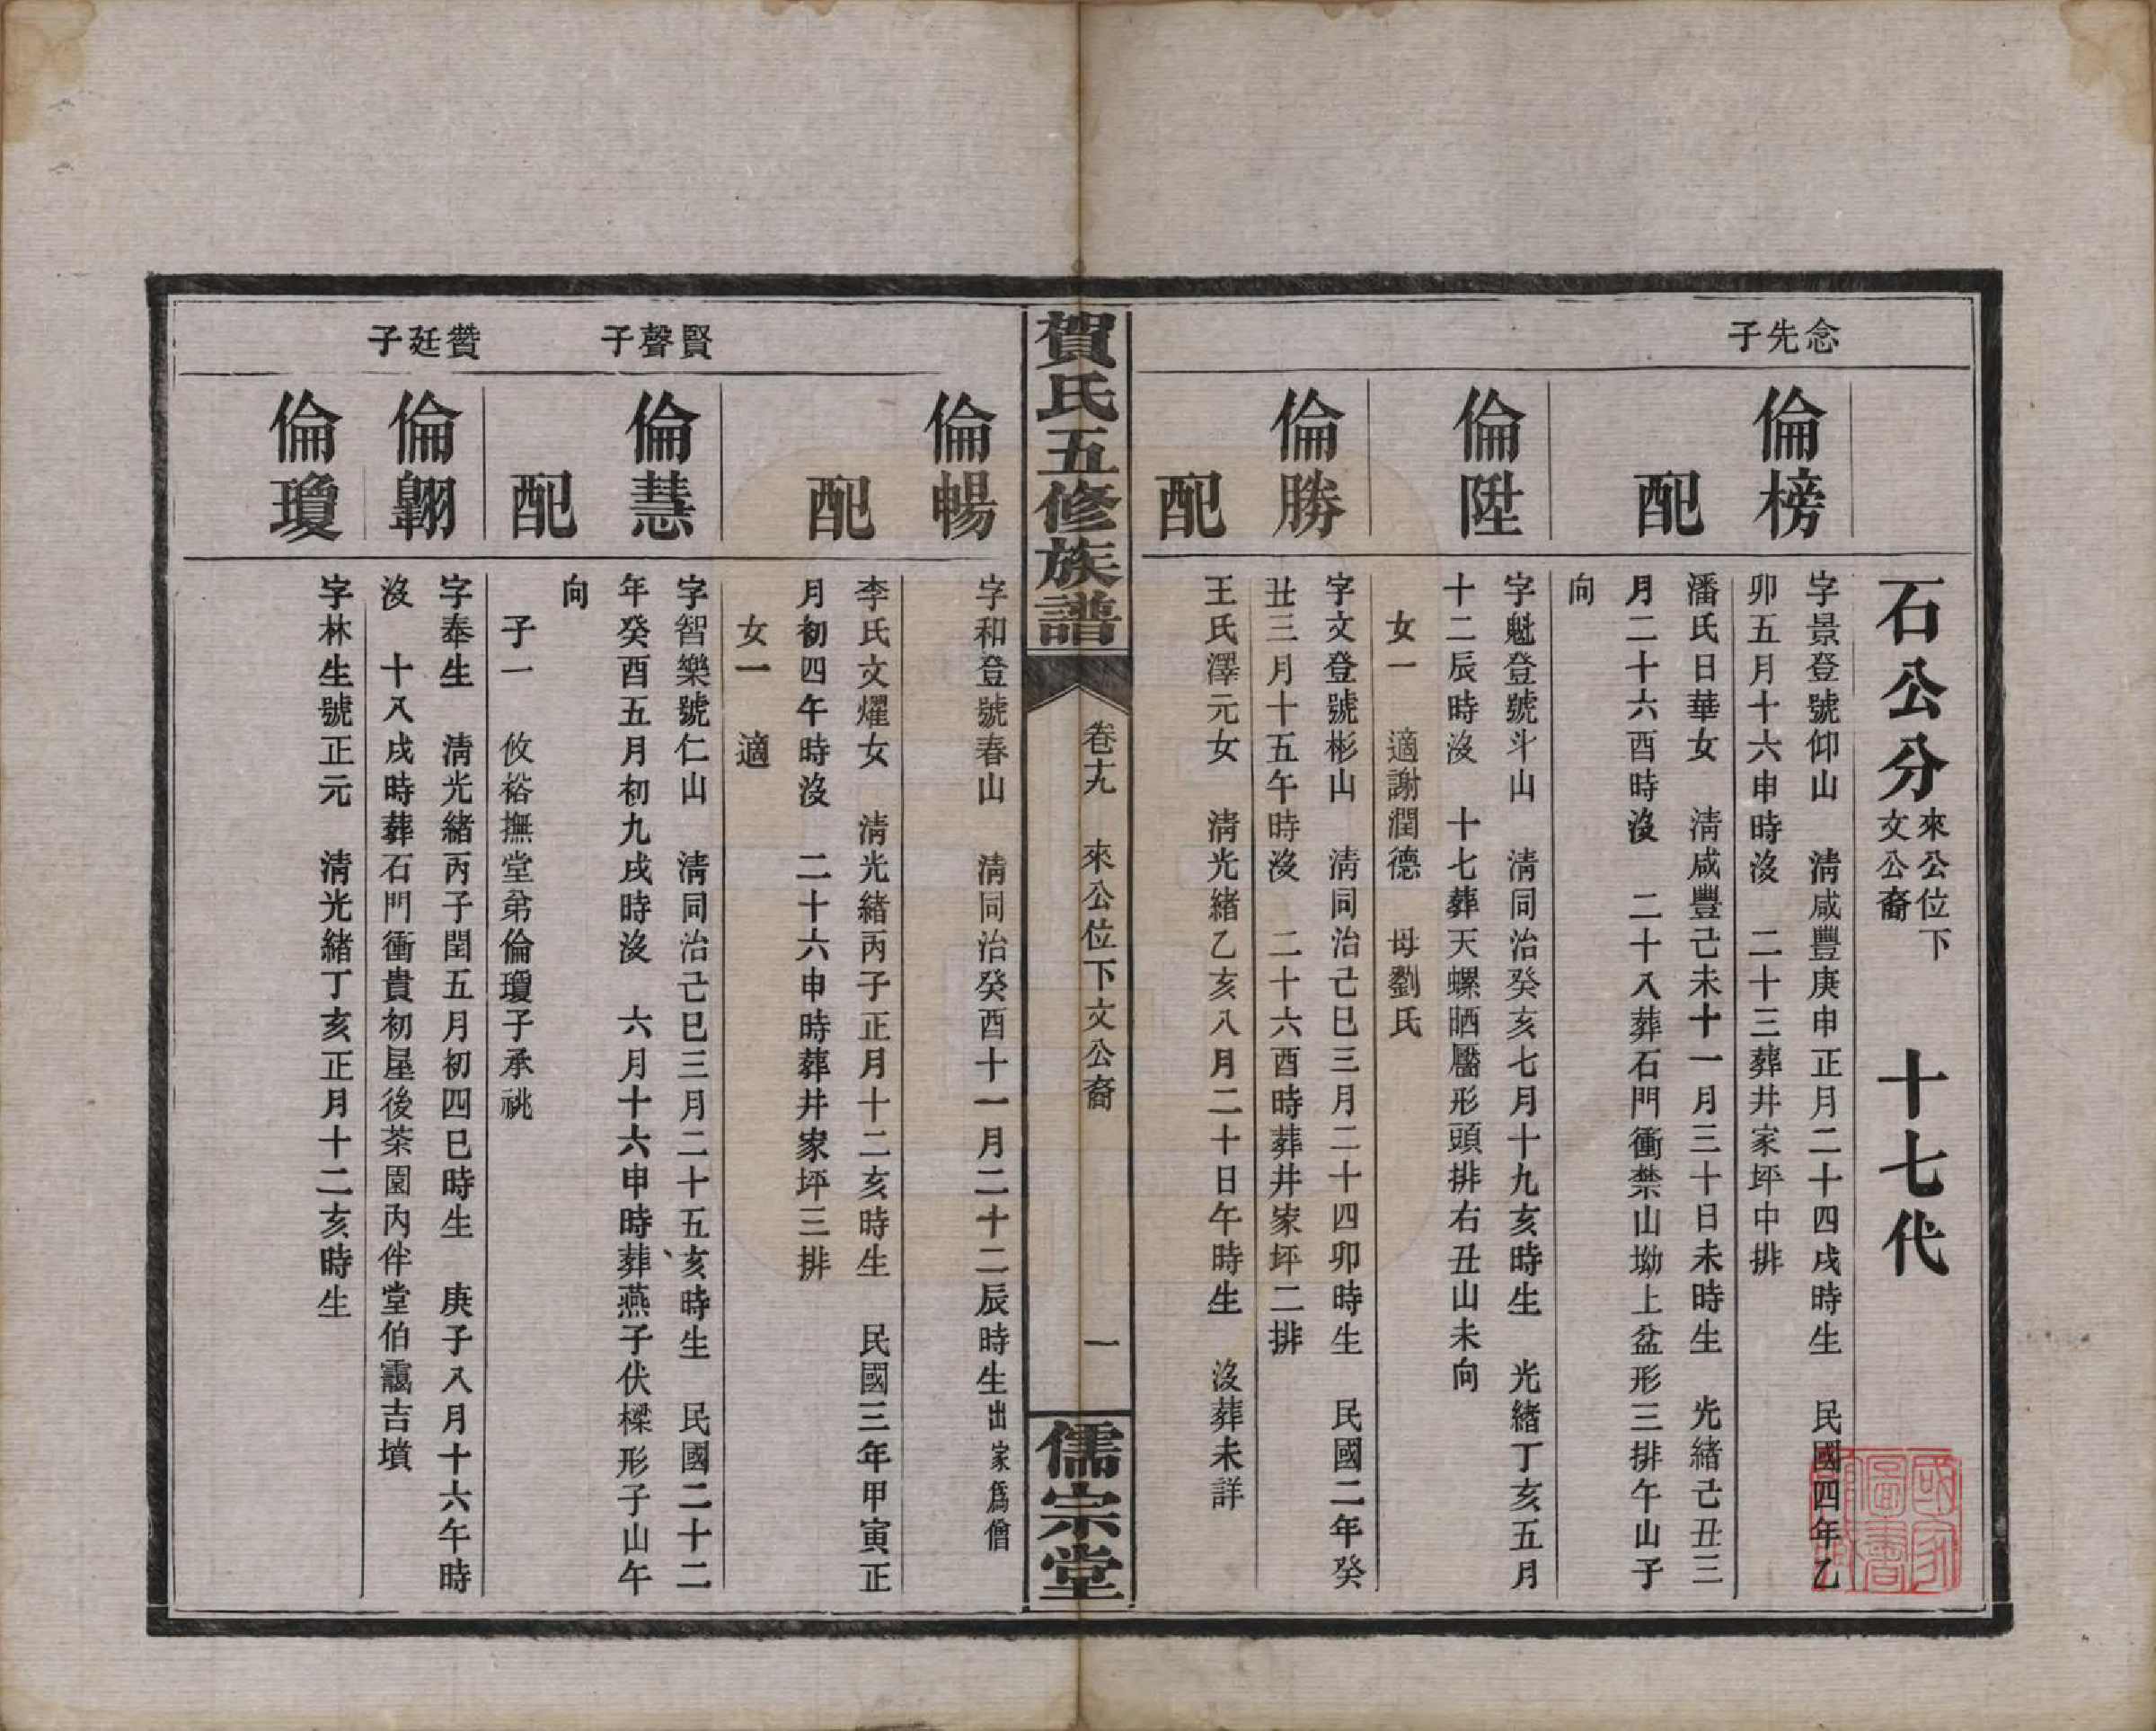 石公分 來公位下 文公裔 十七代
念先子
倫榜
字景登號仰山 清咸豐庚申正月二十四戌時生 民國四年乙
卯五月十六申時沒 二十三葬井家坪中排
配
潘氏日華女 清咸豐己未十一月三十日未時生 光緒己丑三
月二十六酉時沒 二十八葬石門衝禁山坳上盆形三排午山子
向
倫陞
字魁登號斗山 清同治癸亥七月十九亥時生 光緒丁亥五月
十二辰時沒 十七葬天螺晒靨形頭排右丑山未向
女一 適謝潤德 母劉氏
倫勝
字文登號彬山 清同治己巳三月二十四卯時生 民國二年癸
丑三月十五午時沒 二十六酉時葬井家坪二排
配
王氏澤元女 清光緒乙亥八月二十日午時生 沒葬未詳
賀氏五修族譜
卷十九 來公位下文公裔 一
儒宗堂
倫暢
字和登號春山 清同治癸酉十一月二十二辰時生出家為僧
配
李氏文燿女 清光緒丙子正月十二亥時生 民國三年甲寅正
月初四午時沒 二十六申時葬井家坪三排
女一 適
賢聲子
倫慧
字智樂號仁山 清同治己巳三月二十五亥時生 民國二十二
年癸酉五月初九戌時沒 六月十六申時葬燕子伏樑形子山午
向
配
子一 攸裕撫堂弟倫瓊子承祧
贊廷子
倫翺
字奉生 清光緒丙子閏五月初四巳時生 庚子八月十六午時
沒 十八戌時葬石門衝貴初屋後茶園內伴堂伯靄吉墳
倫瓊
字林生號正元 清光緒丁亥正月十二亥時生
國家圖書館藏